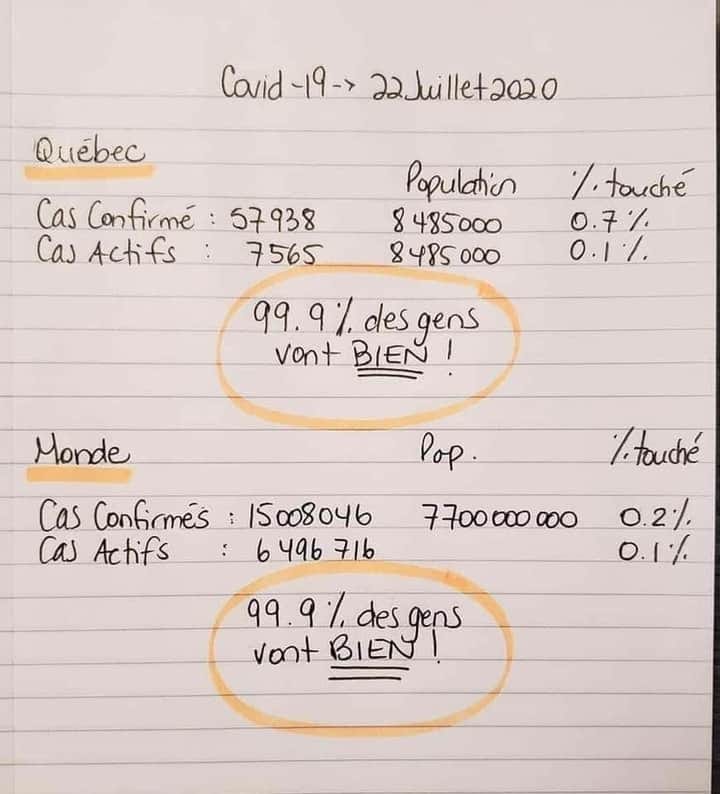 Covid-19-> 22 Juillet 2020
Québec
Population %. touché
Cas Confirmé : 57938 8485000 0.7%
Cas Actifs : 7565 8485000 0.1%.
99.9% des gens
vont BIEN !
Monde Pop. % touché
Cas Confirmés : 15008046 7700000000 0.2%
Cas Actifs : 6496716 0.1%
99.9% des gens
vont BIEN !